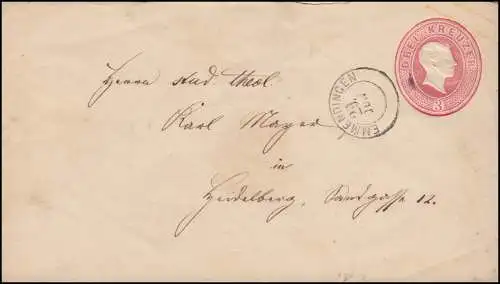 DREI KREUZER
3
EMMENDINGEN
Herrn stud. theol.
Karl Mayer
in
Heidelberg, Sandgasse 12.